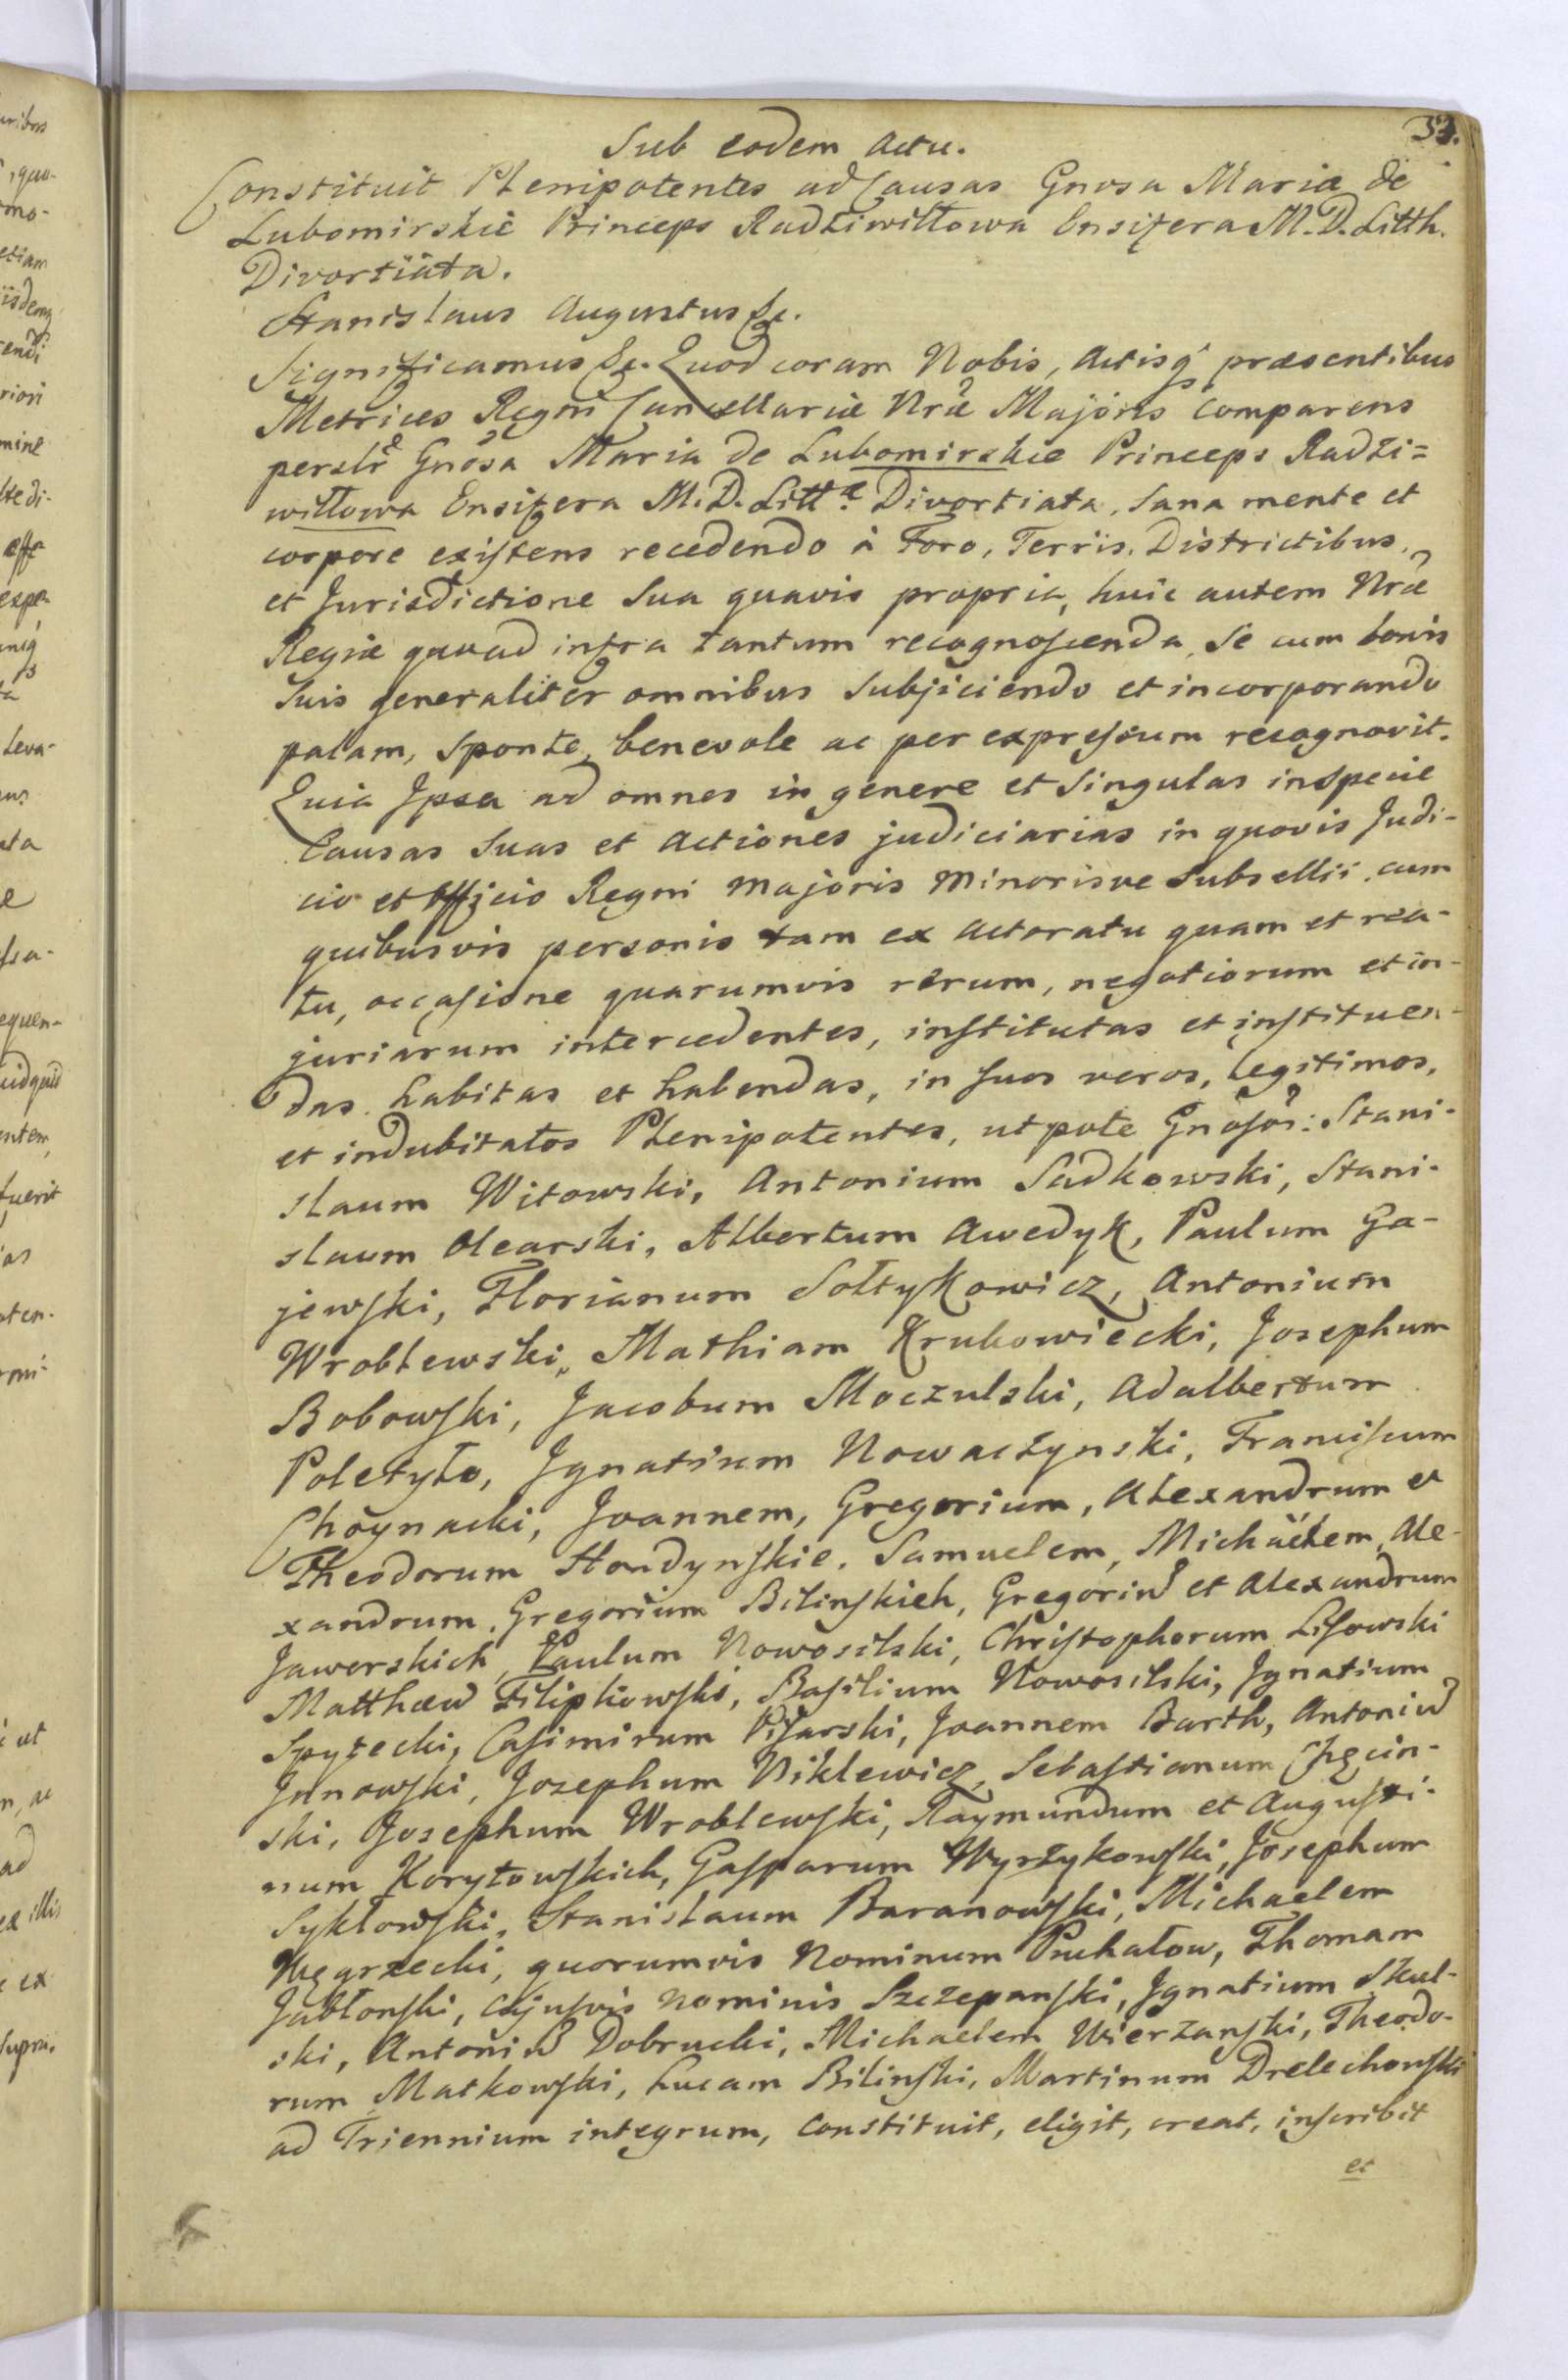 53.
Sub eodem Actu.
Constituit Plenipotentes ad Causas Gnosa Maria de
Lubomirskie Princeps Radziwiłłowa Ensifera M. D. Litth.
Divortiata.
Stanislaus Augustus &c.
Significamus &c. Quod coram Nobis, Actisq præsentibus
Metrices Regni Cancellariæ Nræ Majoris comparens
perslr Gnosa Maria de Lubomirskie Princeps Radzi=
wiłłowa Ensifera M. D. Littæ. Divortiata, sana mente et
corpore existens recedendo à Foro, Terris, Districtibus,
et Jurisdictione sua quavis propria, huic autem Nræ
Regiæ quoad infra tantum recognoscenda, Se cum bonis
suis generaliter omnibus subjiciendo et incorporando
palam, sponte, benevole ac per expressum recognovit.
Quia Ipsa ad omnes in genere et singulas in specie
Causas suas et actiones judiciarias in quovis Judi-
cio et officio Regni majoris minorisve subsellii, cum
quibusvis personis tam ex actoratu quam et rea-
tu, occasione quarumvis rerum, negotiorum et in-
juriarum intercedentes, institutas et instituen-
das habitas et habendas, in suos veros, legitimos,
et indubitatos Plenipotentes, utpote Gnosos: Stani-
slaum Witowski, Antonium Sadkowski, Stani-
slaum Olearski, Albertum Awedyk, Paulum Ga-
jewski, Florianum Sołtykowicz, Antonium
Wroblewski, Mathiam Krukowiecki, Josephum
Bobowski, Jacobum Moczulski, Adalbertum
Poletyło, Ignatium Nowaczynski, Franciscum
Choynacki, Joannem, Gregorium, Alexandrum et
Theodorum Hordynskie, Samuelem, Michaelem, Ale-
xandrum, Gregorium Bilinskich, Gregoriu et Alexandrum
Jaworskich, Paulum Nowosilski, Christophorum Lisowski
Matthæu Filipkowski, Basilium Nowosilski, Ignatium
Spytecki, Casimirum Pisarski, Joannem Barth, Antoniu
Junowski, Josephum Niklewicz, Sebastianum Chęcin-
ski, Josephum Wroblewski, Raymundum et Augusti-
num Korytowskich, Gasparum Wyrzykowski, Josephum
Sykłowski, Stanislaum Baranowski, Michaelem
Węgrzecki, quorumvis Nominum Puchałow, Thomam
Jabłonski, Cujusvis nominis Szczepanski, Ignatium Skul-
ski, Antoniu Dobrucki, Michaelem Wierzanski, Theodo-
rum Matkowski, Lucam Bilinski, Martinum Drelechowski
ad Triennium integrum, constituit, eligit, creat, inscribit
et